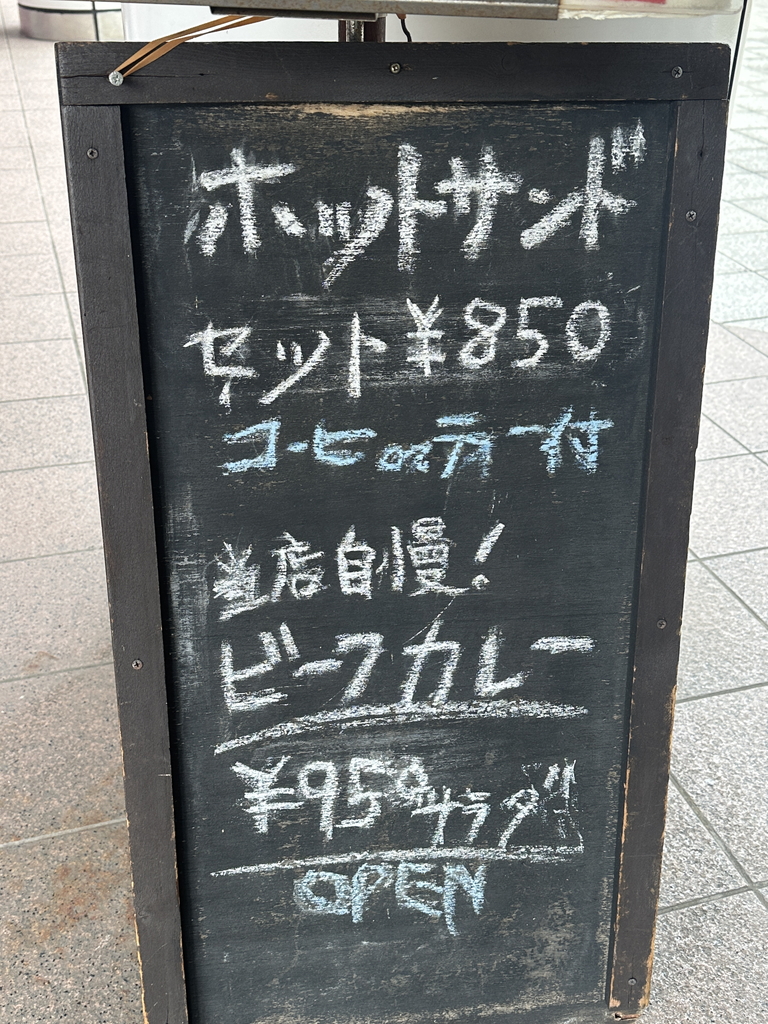 ホットサンド
セット ¥850
コーヒ or ティー付
当店自慢!
ビーフカレー
¥950 サラダ付
OPEN